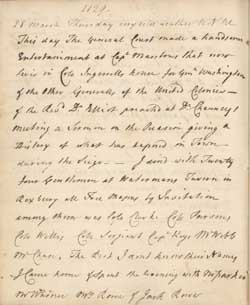 1129.
28 March Thursday cold weather N W
This day the General Court made a handsom
Entertainment at Capt Marstons that now
lives in Colo Ingersolls house for Genl Washington
& the Other Generals of the United Colonies —
& the Revd Dr Elliot preached at Dr Chauncys
Meeting a Sermon on the Occasion giving a
History of what has in Town
during the Siege — I dind with Twenty
four Gentlemen at Watermans Tavern in
Roxbury all Free Masons by Invitation
among them was Colo Clarke Colo Parsons
Colo Willis Colo Sergient Capt Hoys Mr Webb
Mr Chace The Rest I dont know their Names
I Came home & spent the evening with Mr Parker
Mr Warner Mrs Rowe & Jack Rowe